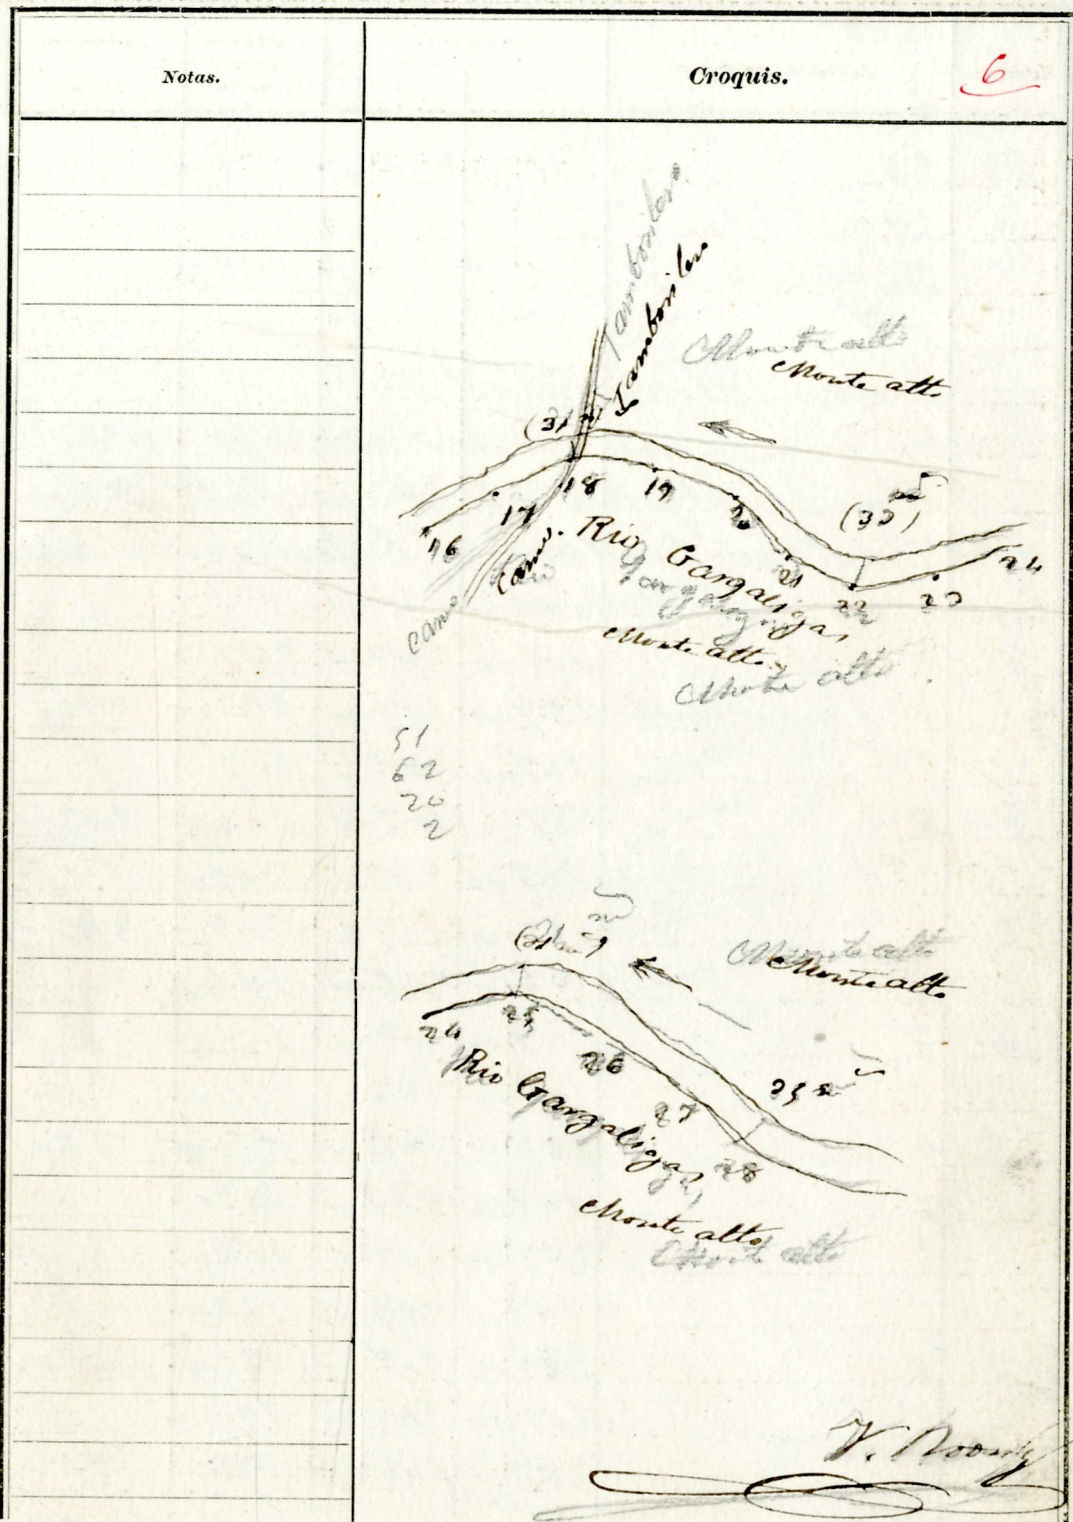 Notas.
Croquis.
6
Tamborilero
Tamborilero
Monte alto
Monte alto
(31 m)
(33)
m
16
17
18
19
20
21
22
23
24
Camo.
Camo
Rio Gargaligas
Rio Gargaligas
Monte alto
Monte alto
51
62
20
2
m
Monte alto
Monte alto
24
25
26
27
28
25 m
Rio Gargaligas
Monte alto
Monte alto